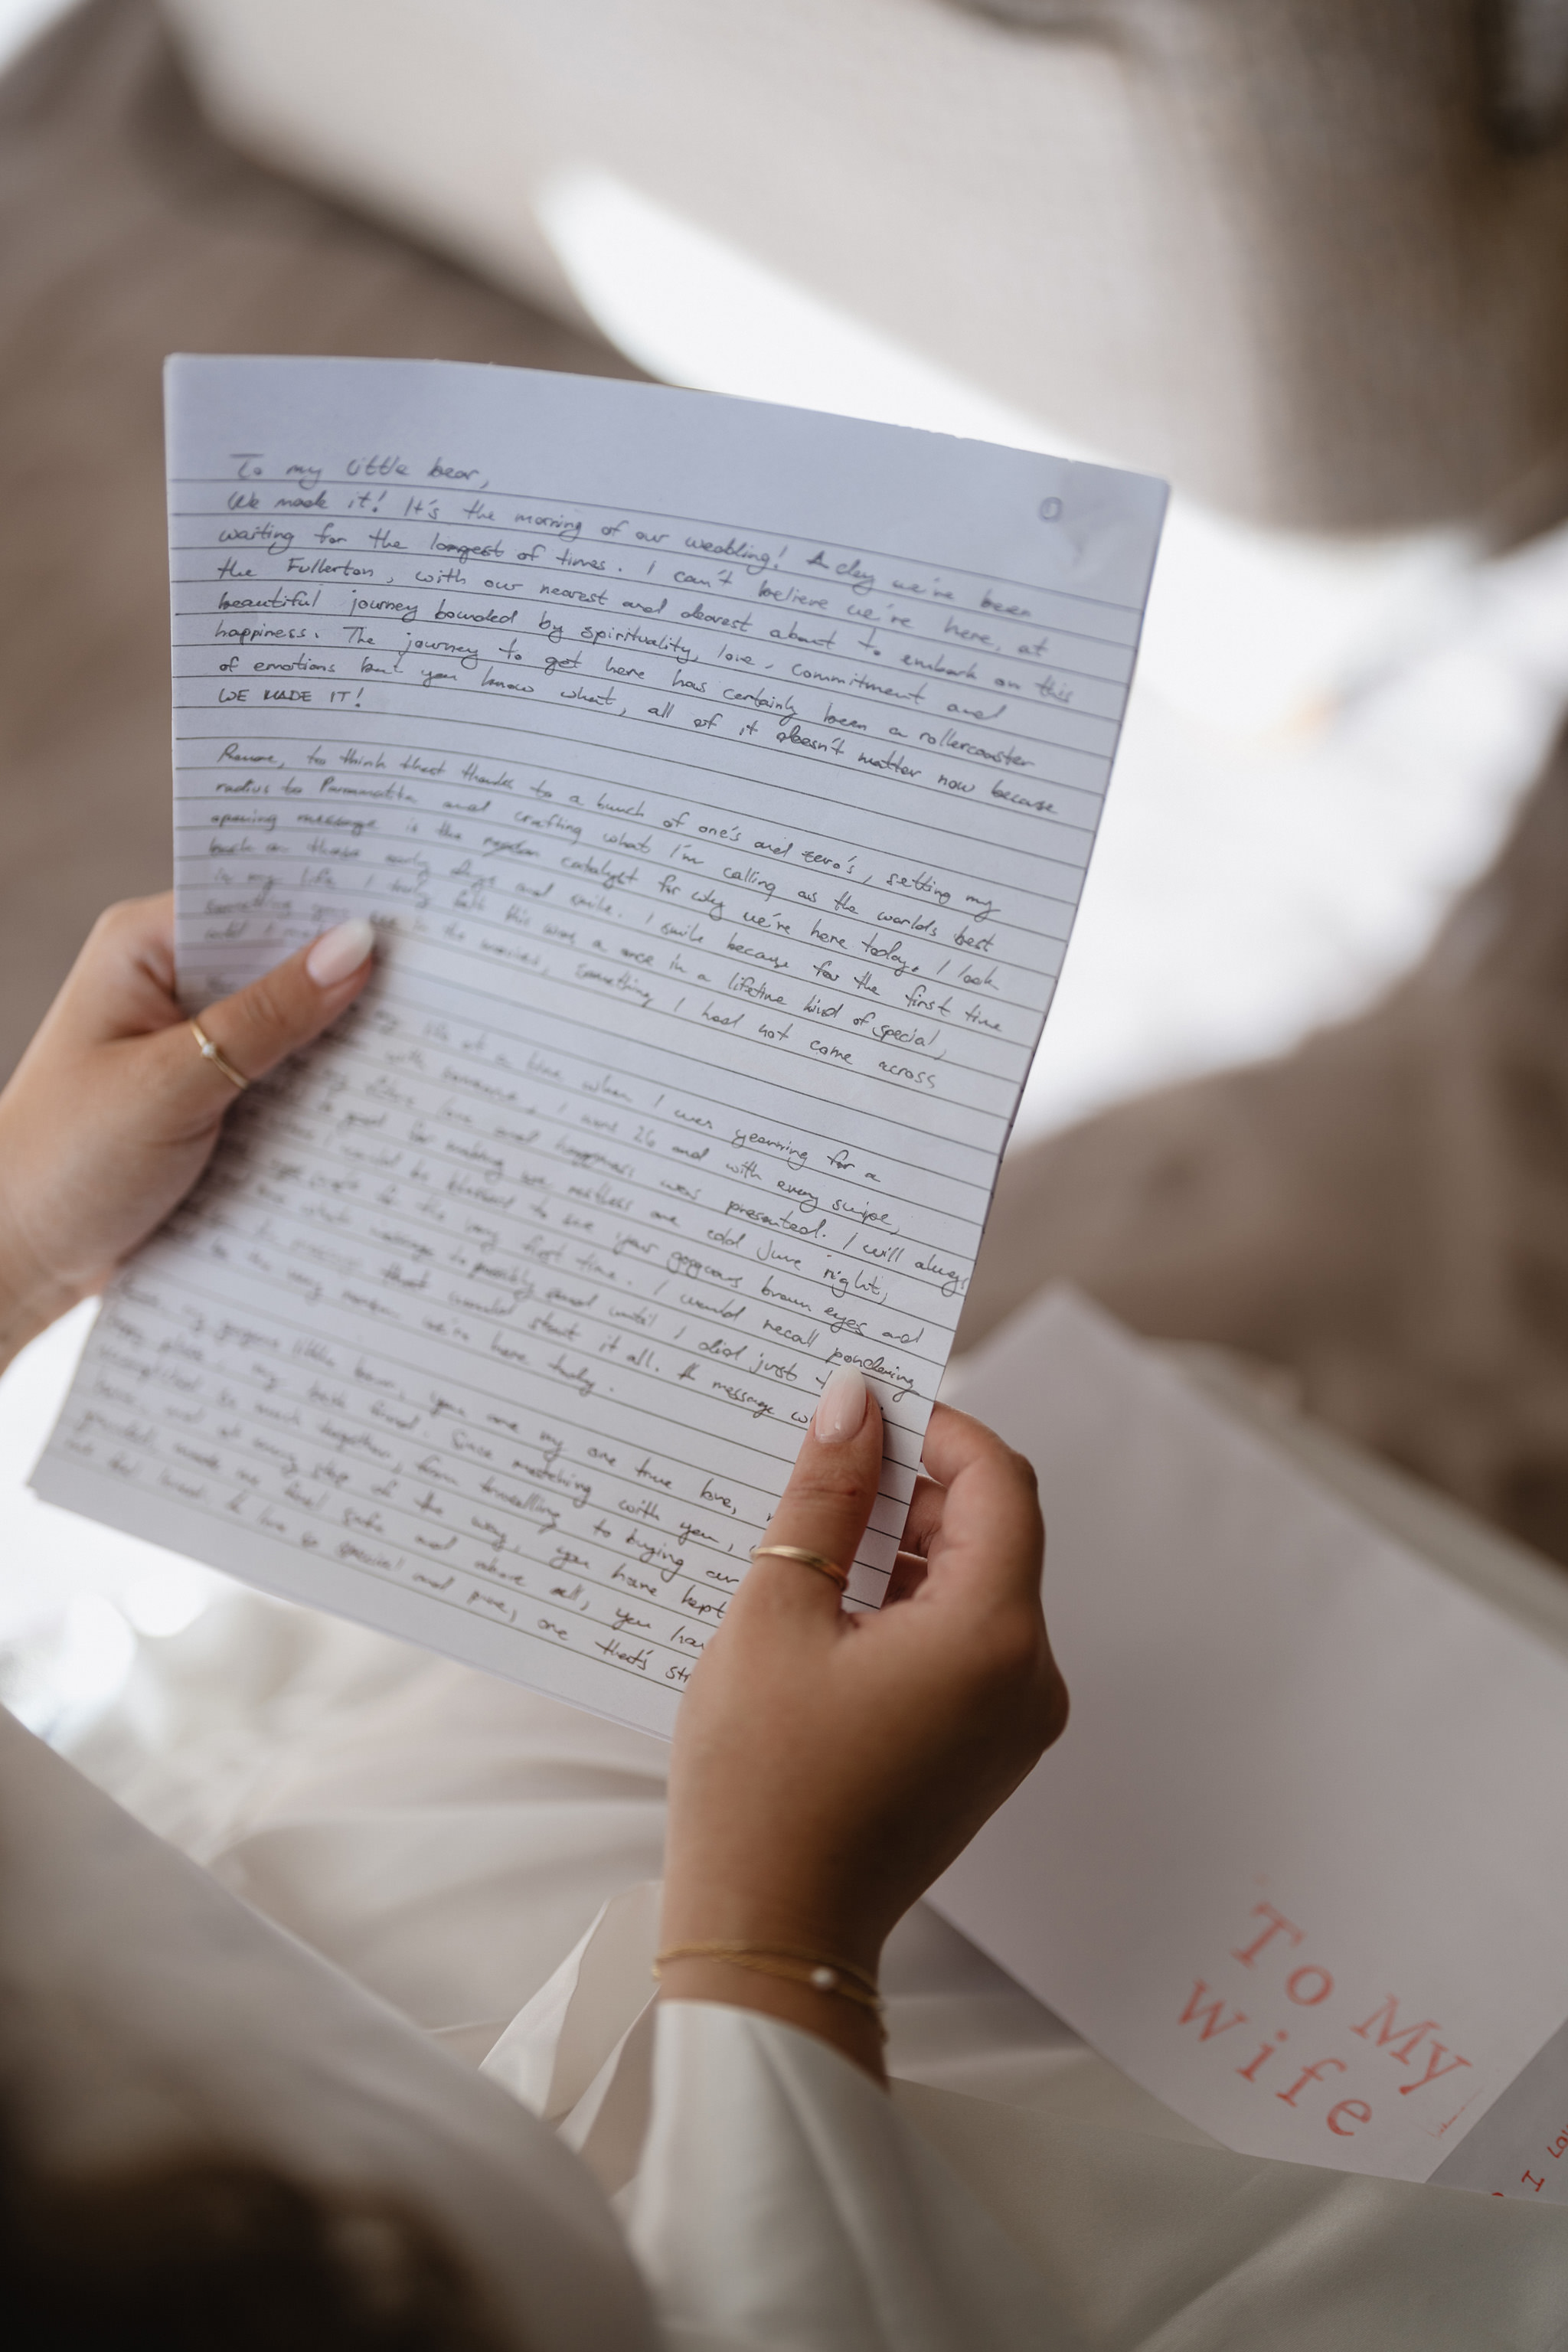 To my little bear,
We made it! It's the morning of our wedding! A day we've been
waiting for the longest of times. I can't believe we're here, at
the Fullerton, with our nearest and dearest about to embark on this
beautiful journey bounded by spirituality, love, commitment and
happiness. The journey to get here has certainly been a rollercoaster
of emotions but you know what, all of it doesn't matter now because
WE MADE IT!
to think that thanks to a bunch of one's and zero's, setting my
radius to Parramatta and crafting what I'm calling as the worlds best
opening message is the catalyst for why we're here today. I look
back on those early days and smile. I smile because for the first time
in my life I truly felt this was a once in a lifetime kind of special,
something you see in the movies, something I had not come across
at a time when I was yearning for a
with someone. I was 26 and with every swipe,
love and happiness was presented. I will always
for making me restless one cold June night,
I would be blessed to see your gorgeous brown eyes and
for the very first time. I would recall pondering
what message to possibly send until I did just
that would start it all. A message
the very reason we're here today.
my gorgeous little bear, you are my one true love,
my best friend. Since matching with you,
so much together, from travelling to buying our
and at every step of the way, you have kept
made me feel safe and above all, you
love so special and pure, one that's
To My
Wife
I